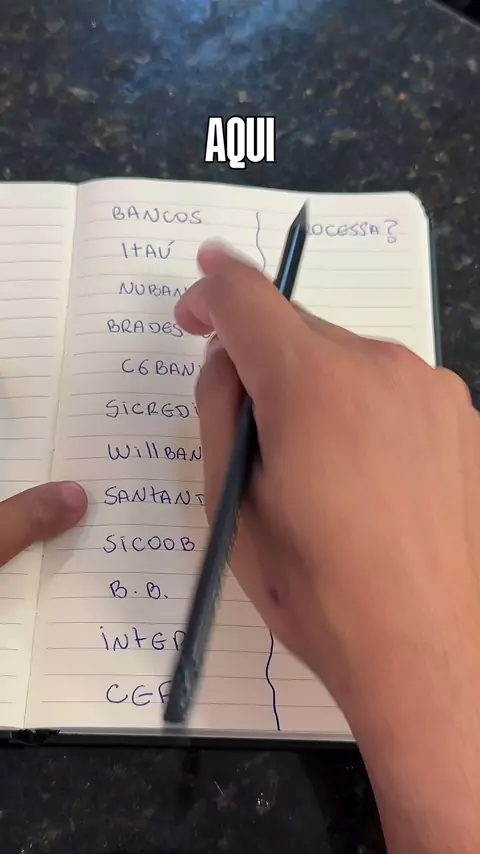 AQUI
BANCOS
OCESSA?
ITAÚ
NUBAN
BRADES
C6 BAN
SICREDI
WillBAN
SANTAN
SICOOB
B.B.
iNTER
CEF